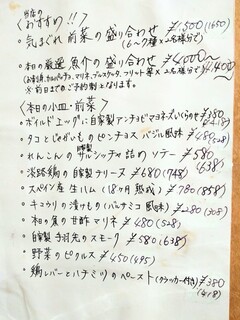 当店の
〈おすすめ!!〉
・気まぐれ 前菜の盛り合わせ ¥1,500(1650)
(6〜7種×2名様分で)
・本日の厳選 魚介の盛り合わせ ¥4,000〜
(お刺身、カルパッチョ、マリネ、ブルスケッタ、フリット等×2名様分で) ¥4,400
※前日までのご予約制となります。
〈本日の小皿・前菜〉
・ボイルドエッグ 自家製アンチョビマヨネーズいくらのせ ¥380
(418)
・タコとじゃがいものピンチョス バジル風味 ¥480(528)
・れんこんの自家製サルシッチャ詰め ソテー ¥580
(638)
・淡路鶏の自家製テリーヌ ¥680(748)
・スペイン産 生ハム (18ヶ月熟成) ¥780(858)
・キュウリの漬けもの(バルサミコ風味) ¥280(308)
・旬の魚の甘酢マリネ ¥480(528)
・自家製 手羽先のスモーク ¥580(638)
・野菜のピクルス ¥450(495)
・鶏レバーとハチミツのペースト(クラッカー付き) ¥380
(418)